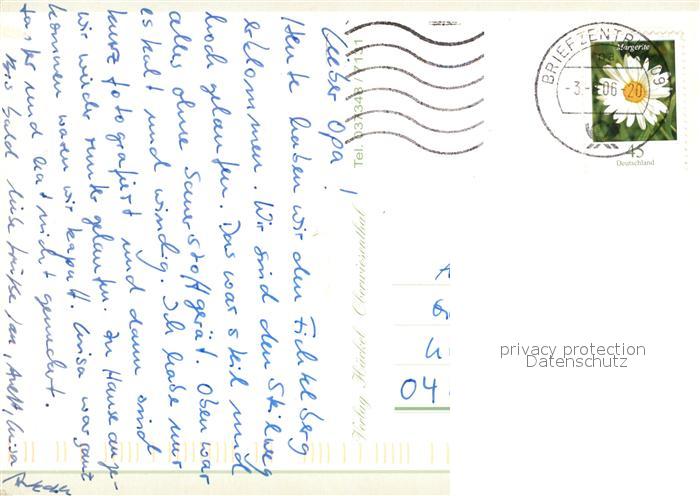 Lieber Opa!
Heute haben wir den Fichtelberg
erklommen. Wir sind den Skiweg
hoch gelaufen. Das war steil und
alles ohne Sauerstoffgerät. Oben war
es kalt und windig. Ich habe nur
kurz fotografiert und dann sind
wir wieder runter gelaufen. Zu Hause ange-
kommen waren wir kaputt. Luisa war ganz
tapfer und hat nicht gemeckert.
Bis bald liebe Grüße Jan, Luisa
Tel. 037348 /
Verlag Oberwiesenthal
BRIEFZENTRUM 09
-3.- -06-20
Margerite
45
Deutschland
04
privacy protection
Datenschutz